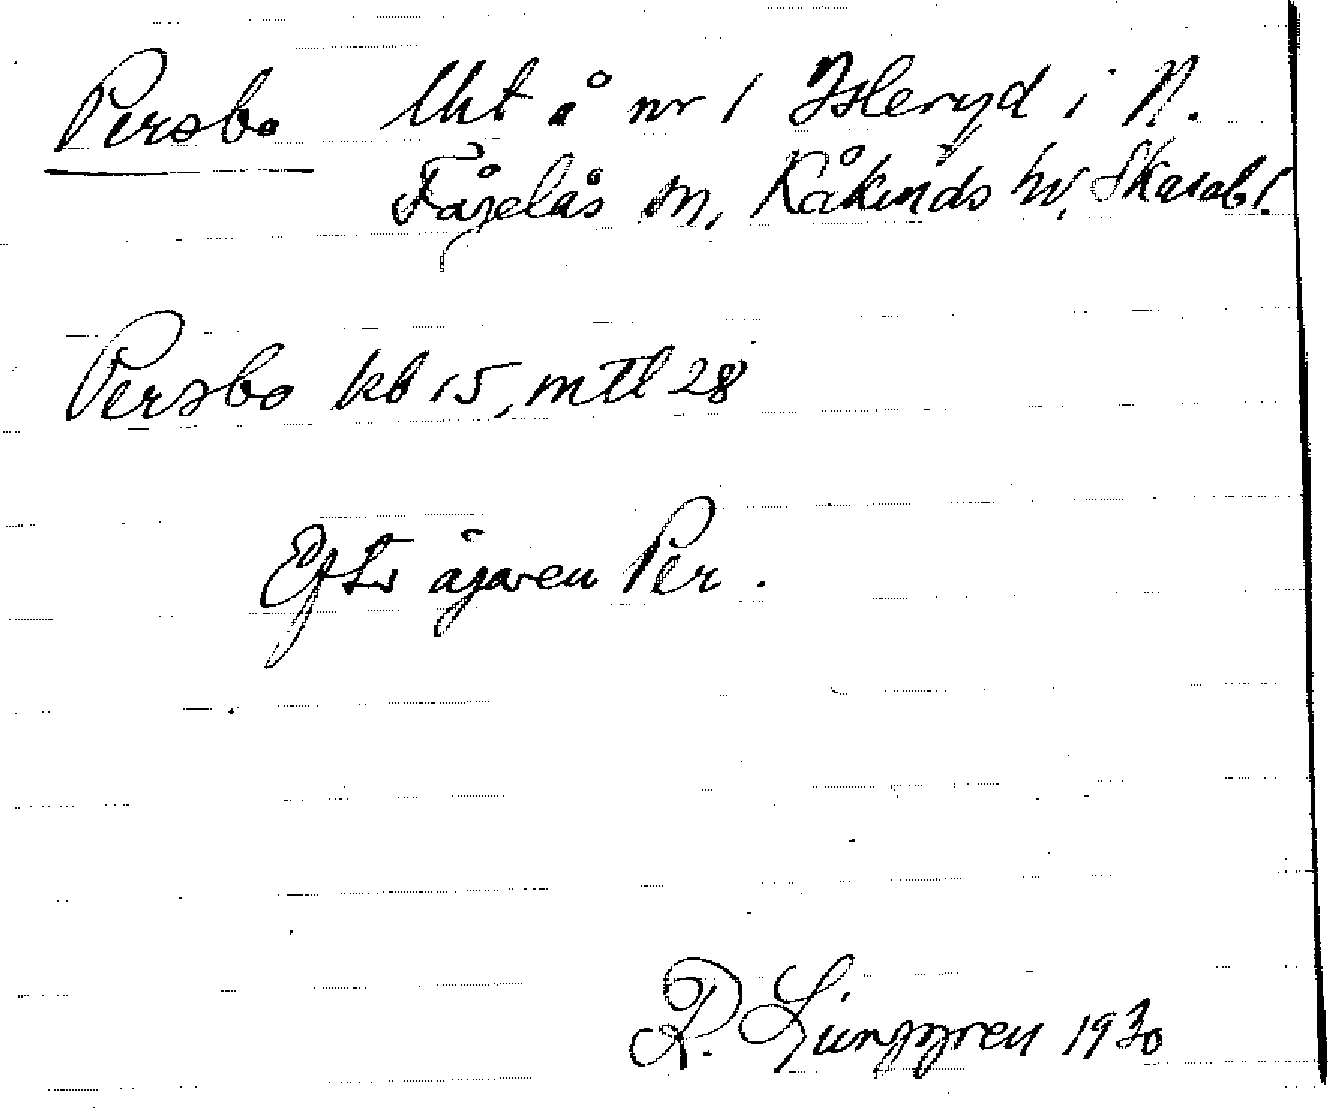 Persbo Uht å nr 1 Isleryd i N.
Fågelås sn, Kåkinds hd, Skarab l.
Persbo kb 15, mtl 28
Efter ägaren Per.
R. Ljunggren 1930